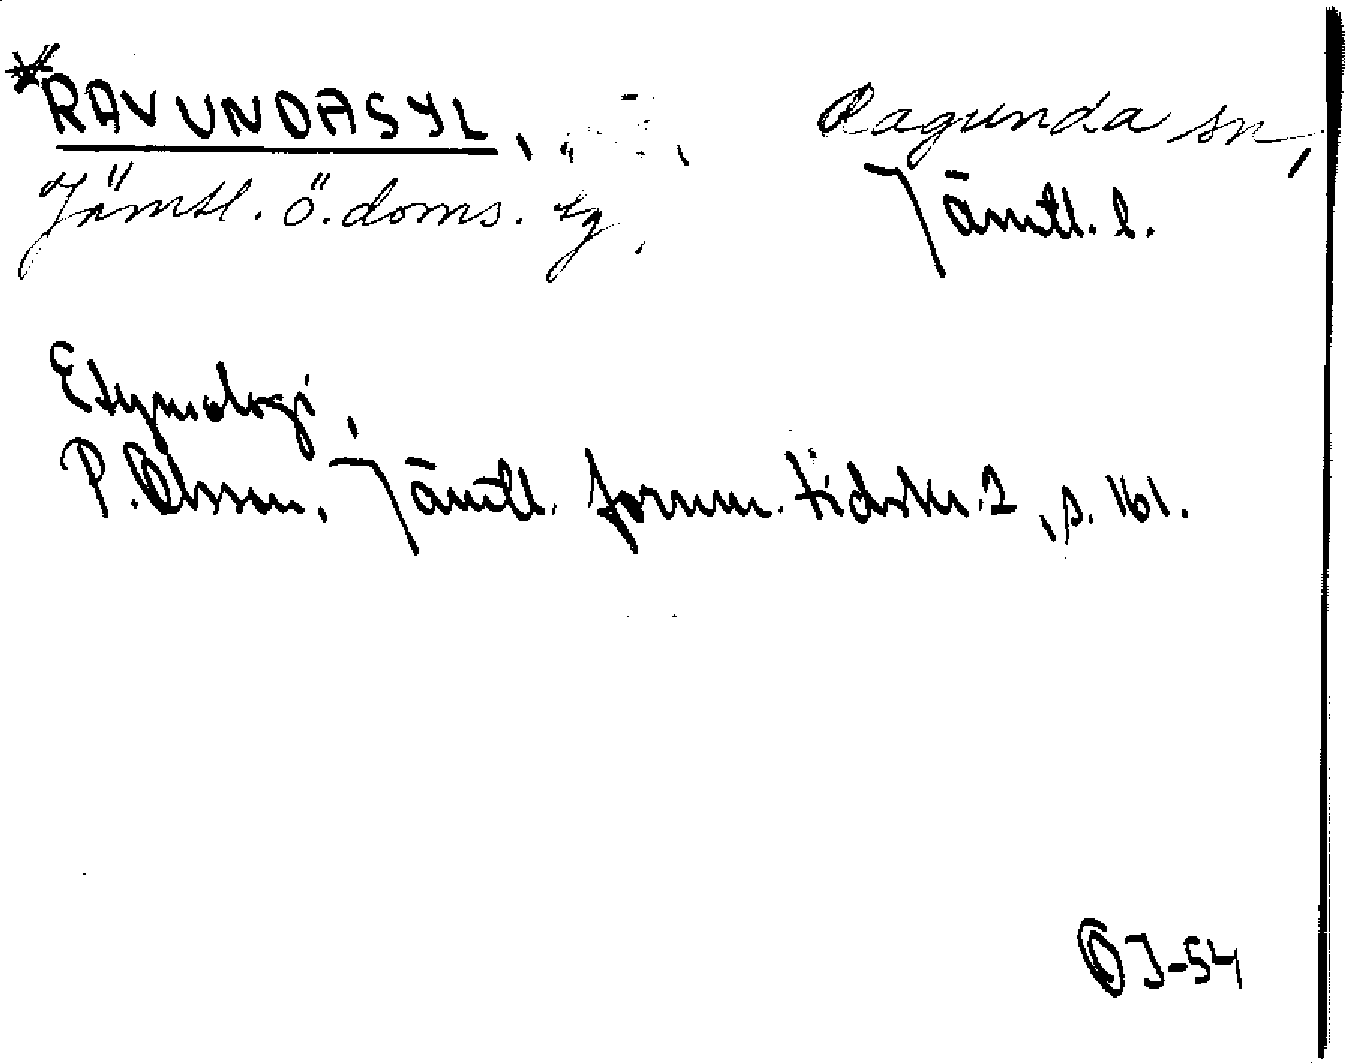 *RAVUNDASYL,
Jämtl. ö. doms. tg.
Ragunda sn,
Jämtl. l.
Etymologi,
P. Olsson, Jämtl. fornm. tidskr. 2, s. 161.
OJ-54